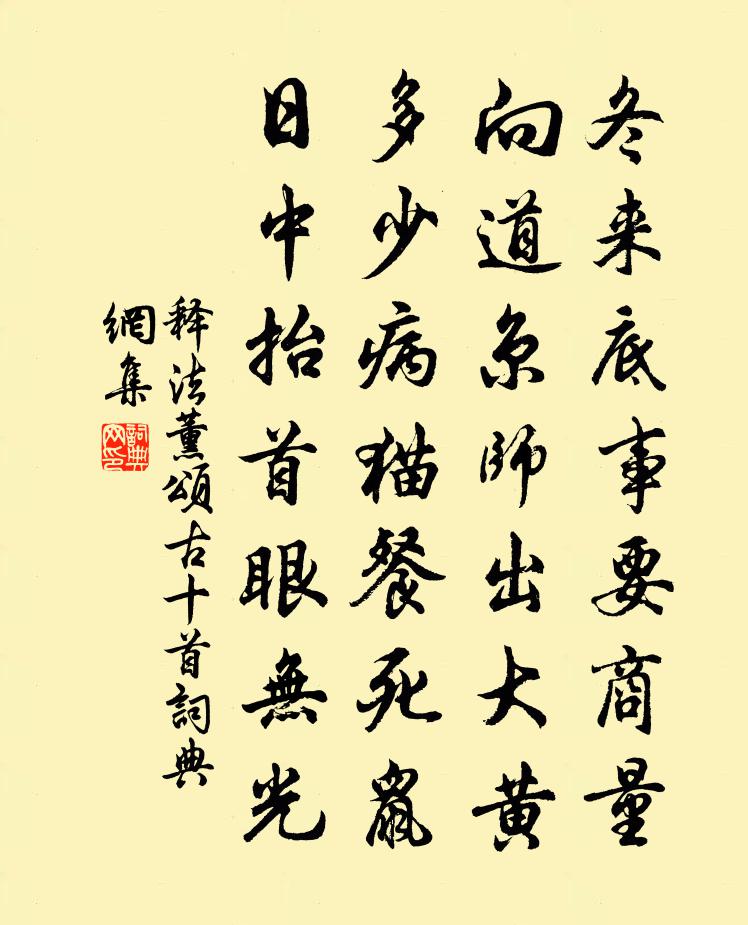 冬来底事要商量
向道京師出大黄
多少病猫餐死鼠
日中抬首眼無光
释法薰頌古十首詞典
網集
詞典
网印